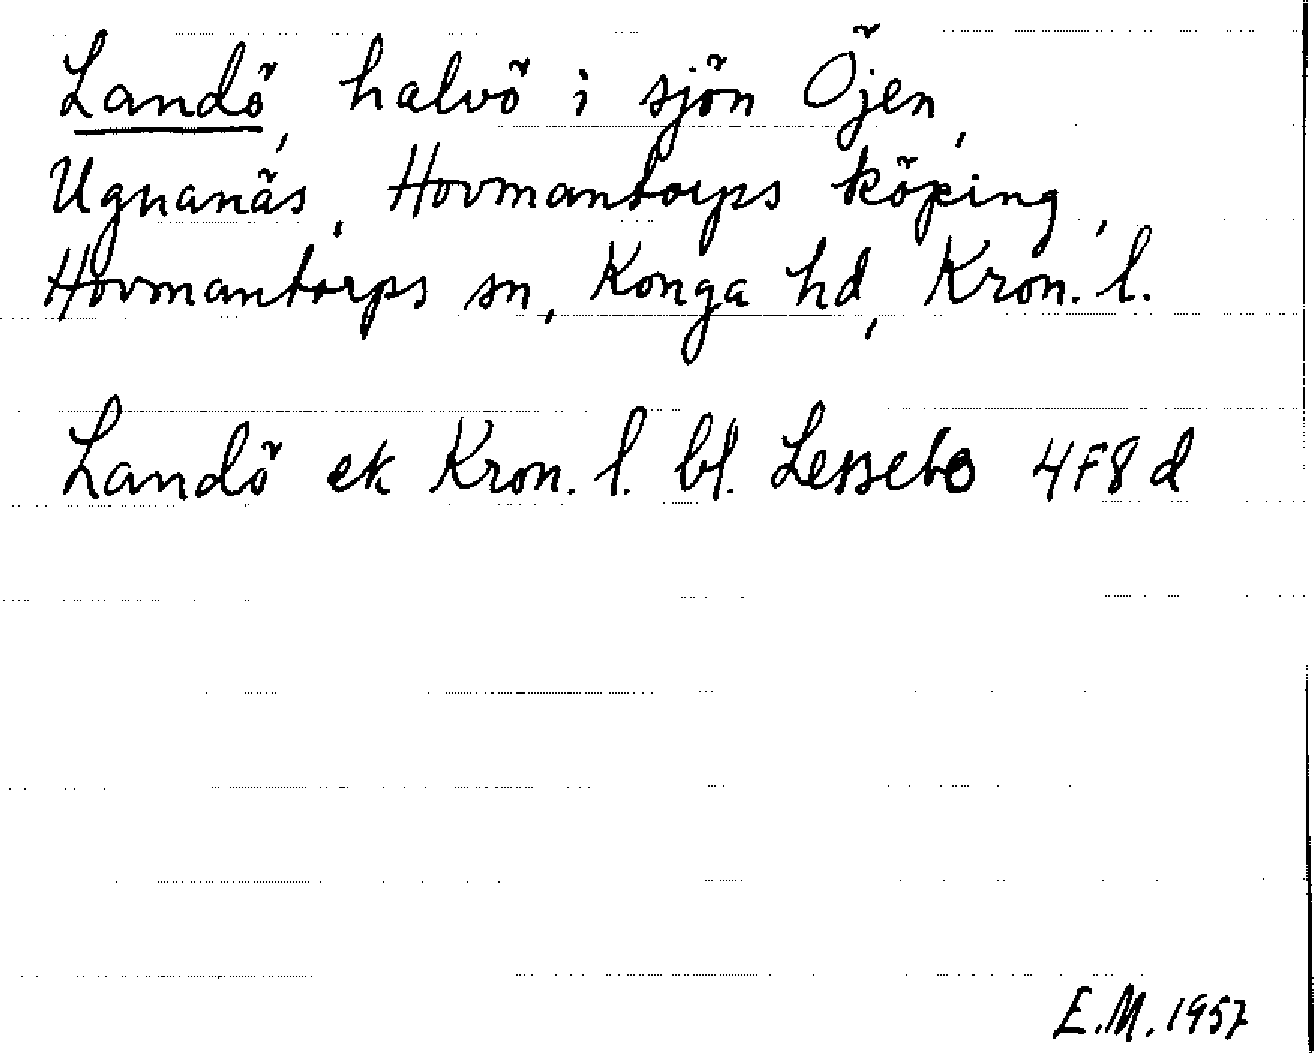 Landö, halvö i sjön Öjen,
Ugnanäs, Hovmantorps köping,
Hovmantorps sn, Konga hd, Kron. l.
Landö ek Kron. l. bl. Lessebo 4F8d
E.M. 1957